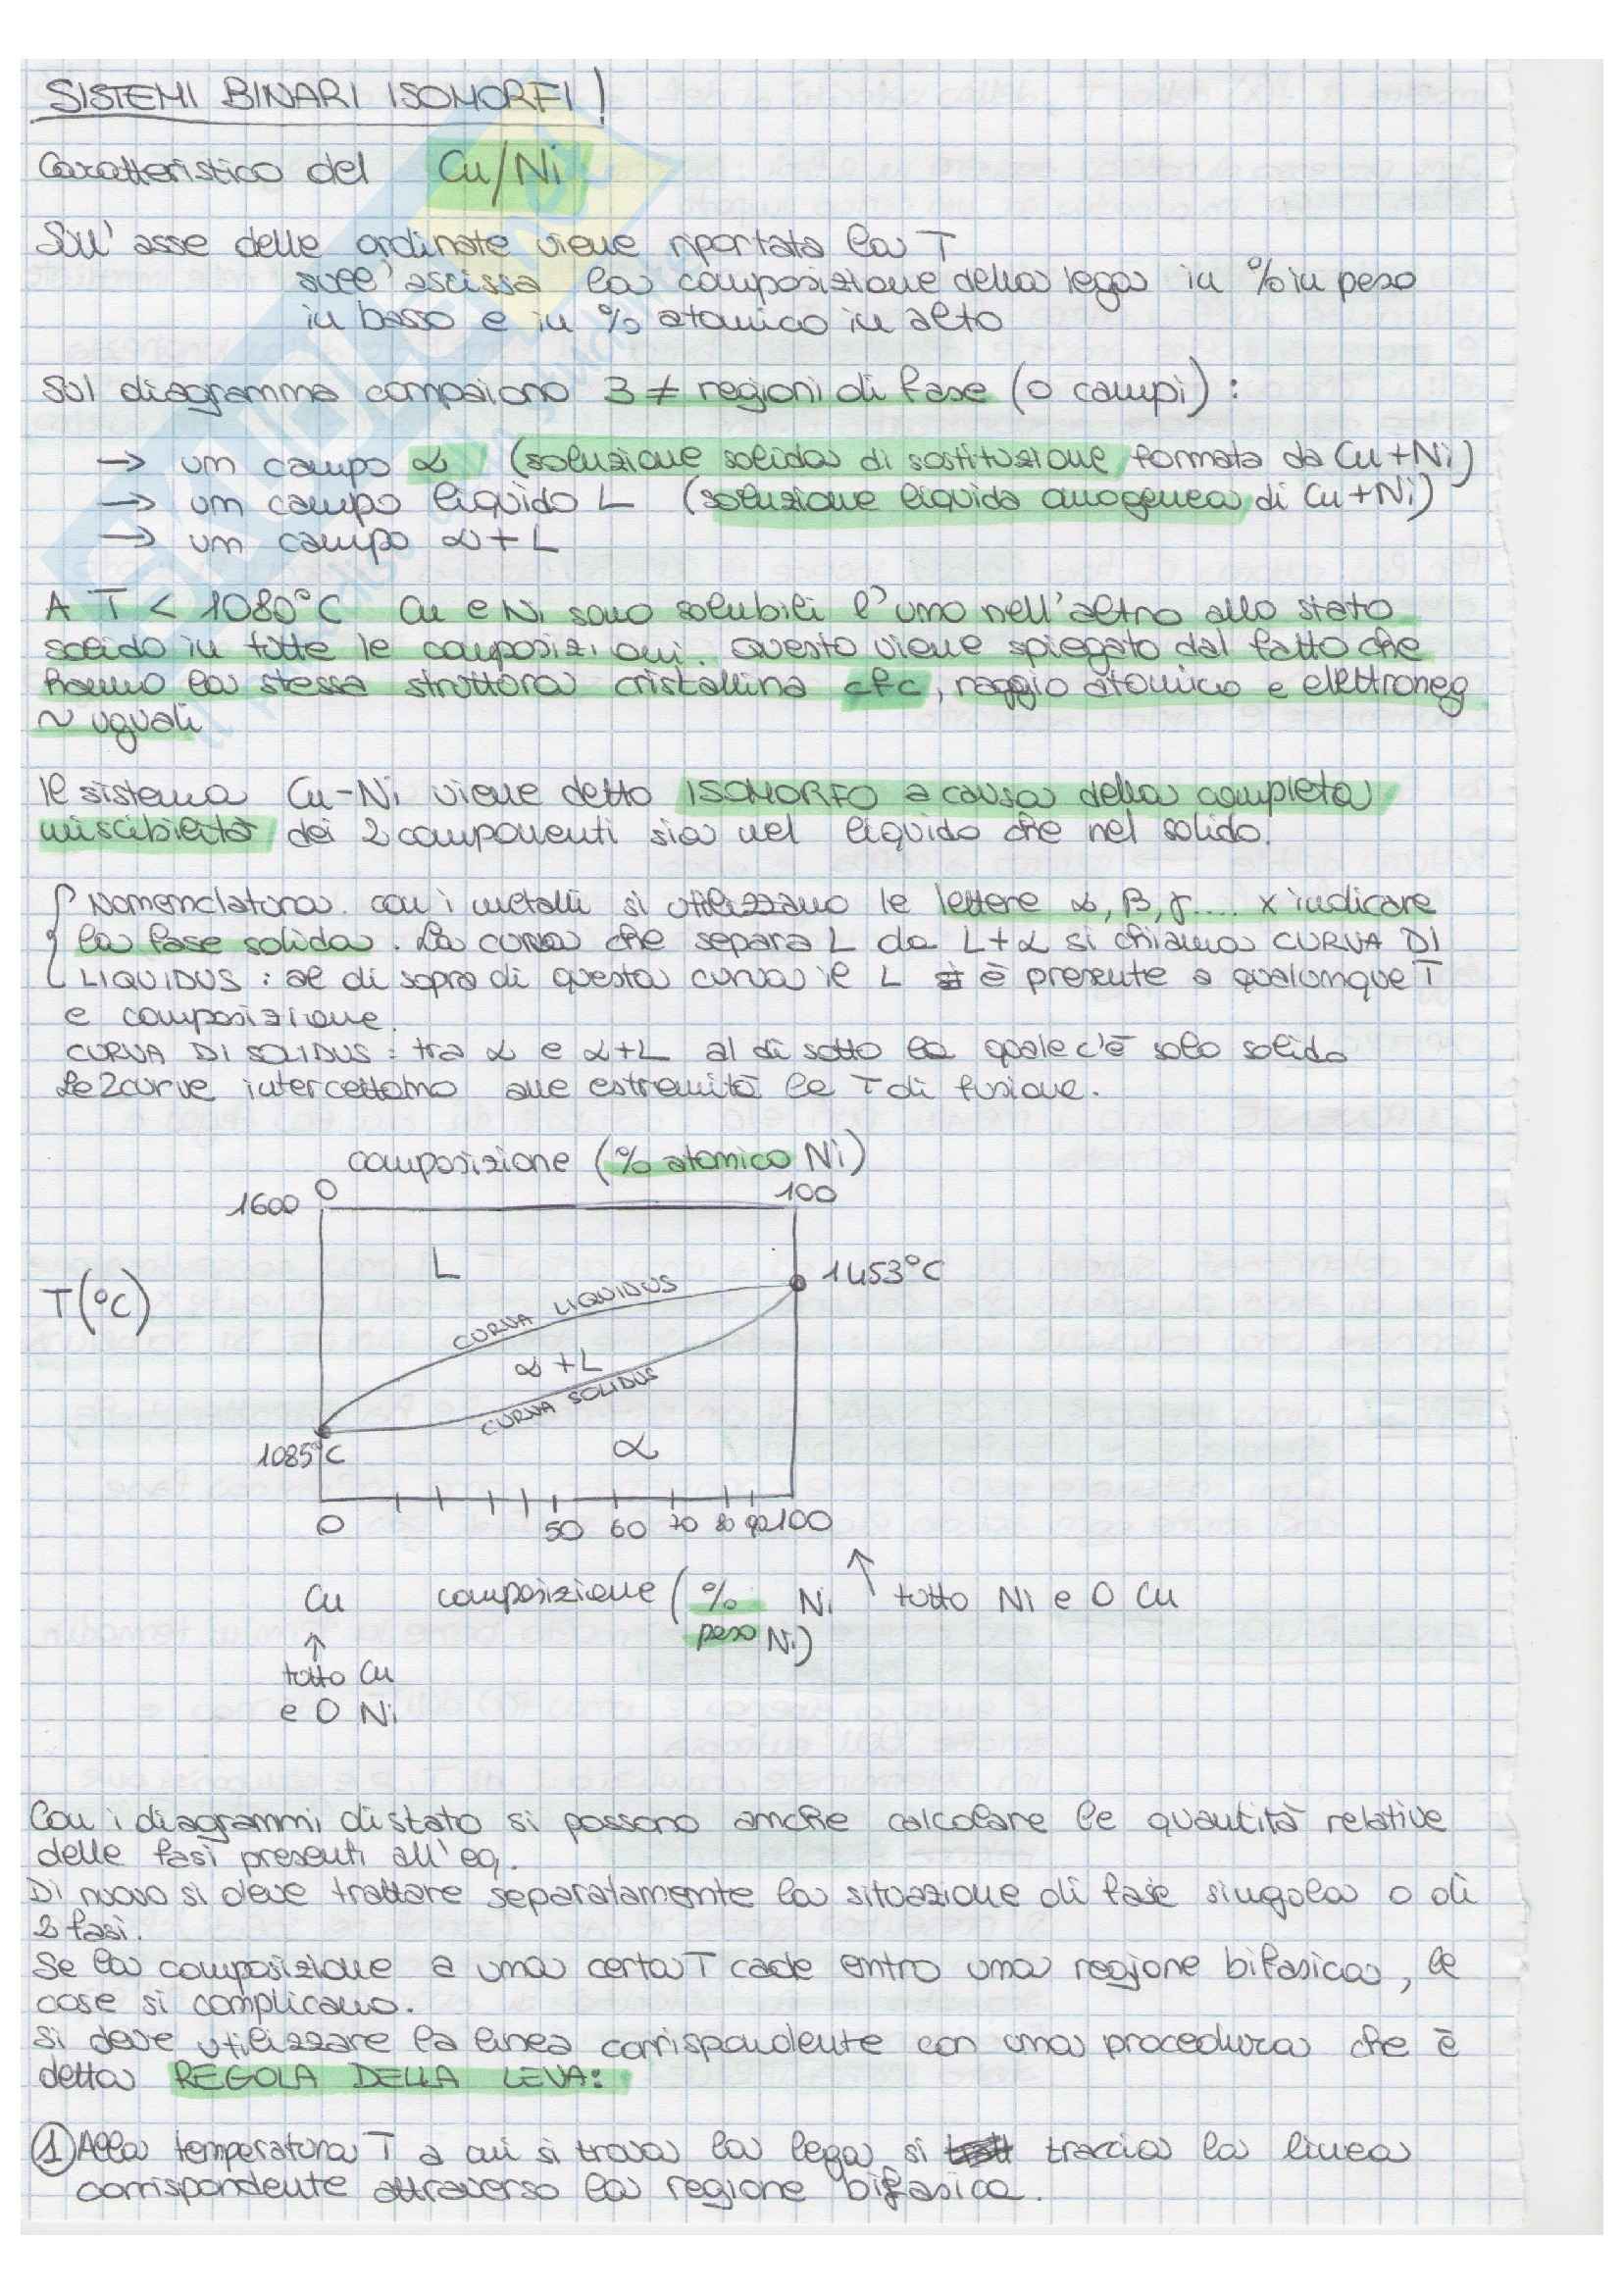 SISTEMI BINARI ISOMORFI!
Caratteristico del Cu/Ni
Sull'asse delle ordinate viene riportata la T
sull'ascissa la composizione della lega in % in peso
in basso e in % atomico in alto
Sul diagramma compaiono 3 ≠ regioni di fase (o campi):
→ un campo α (soluzione solida di sostituzione formata da Cu+Ni)
→ un campo liquido L (soluzione liquida omogenea di Cu+Ni)
→ un campo α+L
A T < 1080°C Cu e Ni sono solubili l'uno nell'altro allo stato
solido in tutte le composizioni. Questo viene spiegato dal fatto che
hanno la stessa struttura cristallina cfc, raggio atomico e elettroneg
~ uguali
Il sistema Cu-Ni viene detto ISOMORFO a causa della completa
miscibilità dei 2 componenti sia nel liquido che nel solido.
Nomenclatura. con i metalli si utilizzano le lettere α, β, γ.... x indicare
la fase solida. La curva che separa L da L+α si chiama CURVA DI
LIQUIDUS: al di sopra di questa curva il L è presente a qualunque T
e composizione.
CURVA DI SOLIDUS: tra α e α+L al di sotto la quale c'è solo solido
Le 2 curve intercettano alle estremità le T di fusione.
composizione (% atomico Ni)
1600 0 100
L
1453°C
T(°C)
CURVA LIQUIDUS
α+L
CURVA SOLIDUS
1085°C
α
0 50 60 70 80 90 100
Cu composizione (% Ni ↑ tutto Ni e 0 Cu
peso Ni)
↑
tutto Cu
e 0 Ni
Con i diagrammi di stato si possono anche calcolare le quantità relative
delle fasi presenti all'eq.
Di nuovo si deve trattare separatamente la situazione di fase singola o di
2 fasi.
Se la composizione a una certa T cade entro una regione bifasica, le
cose si complicano.
Si deve utilizzare la linea corrispondente con una procedura che è
detta REGOLA DELLA LEVA:
① Alla temperatura T a cui si trova la lega si traccia la linea
corrispondente attraverso la regione bifasica.